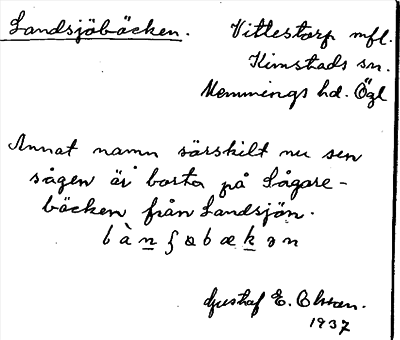 Landsjöbäcken.
Vittestorp mfl.
Kimstads sn.
Memmings hd. Ögl
Annat namn särskilt nu sen
sågen är borta på Sågare-
bäcken från Landsjön.
Gustaf E. Olsson.
1937